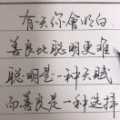 有天你會明白
善良比聪明更难
聪明是一种天赋
而善良是一种选择